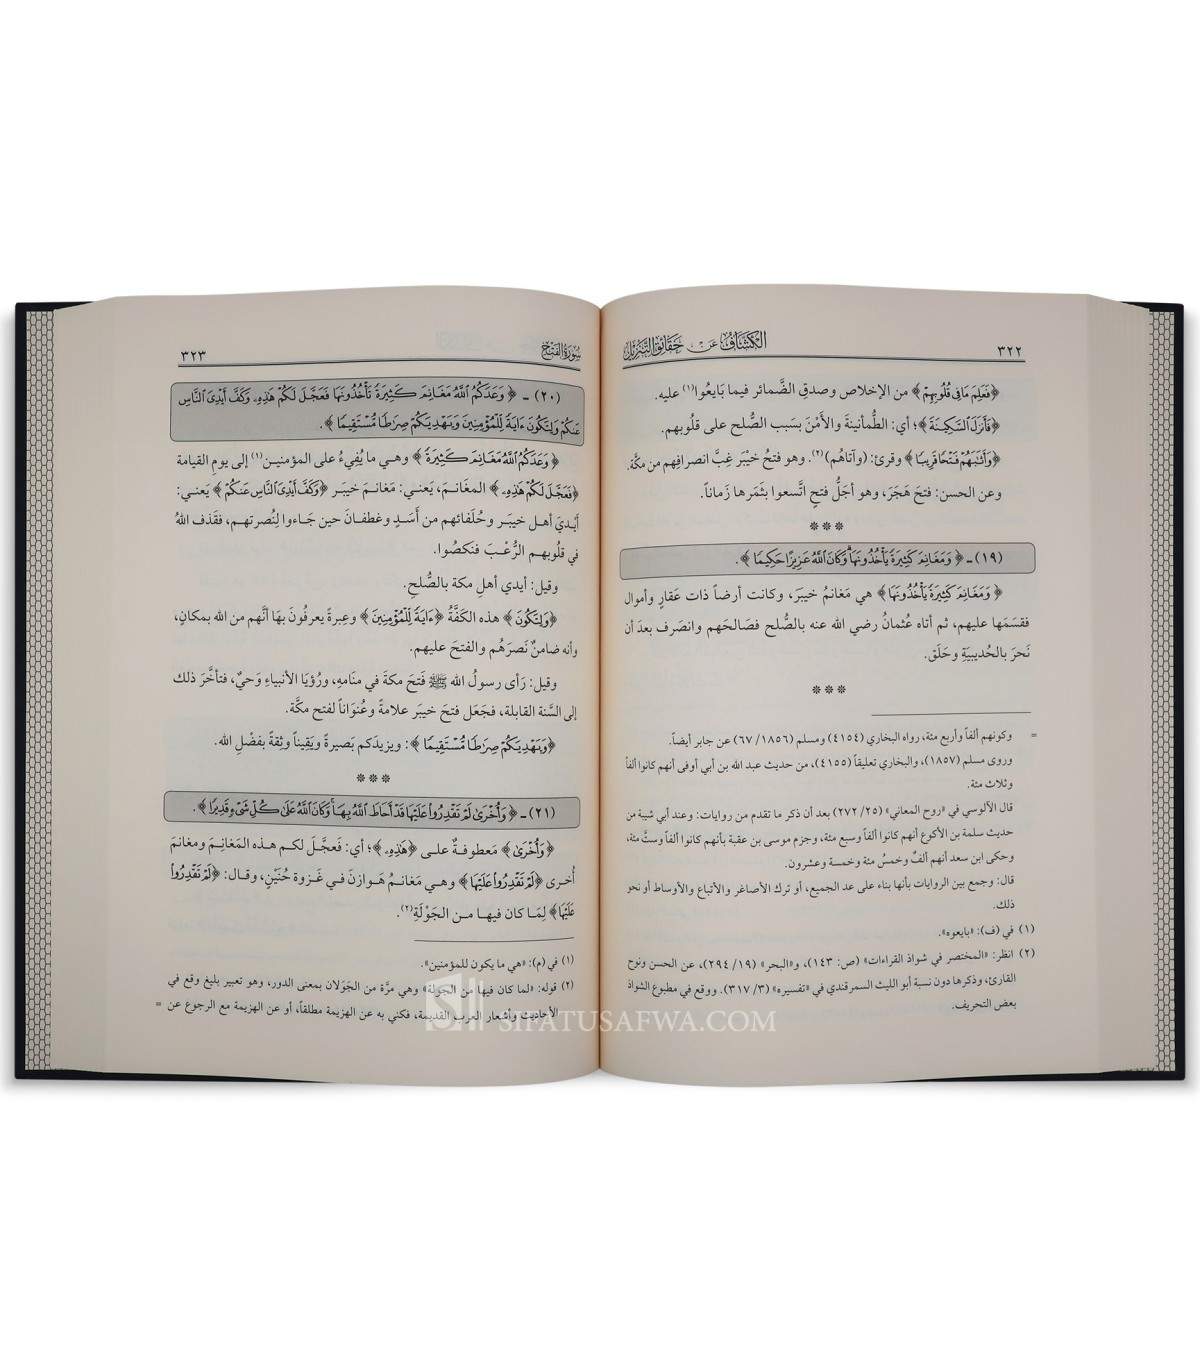 ٣٢٢ الكشاف عن حقائق التنزيل
﴿فَعَلِمَ مَا فِي قُلُوبِهِمْ﴾ من الإخلاص وصدقِ الضَّمائر فيما بَايعُوا(١) عليه.
﴿فَأَنزَلَ ٱلسَّكِينَةَ﴾؛ أي: الطُّمأنينةَ والأَمْنَ بسَببِ الصُّلح على قلُوبهم.
﴿وَأَثَٰبَهُمْ فَتْحًا قَرِيبًا﴾ وقرئ: (وآتاهُم)(٢). وهو فتحُ خيْبَر غِبَّ انصرافِهم من مكّة.
وعن الحسن: فتحَ هَجَرَ، وهو أجَلُّ فتحٍ اتَّسعوا بثَمَرها زَماناً.
***
(١٩) - ﴿وَمَغَانِمَ كَثِيرَةً يَأْخُذُونَهَا وَكَانَ ٱللَّهُ عَزِيزًا حَكِيمًا﴾.
﴿وَمَغَانِمَ كَثِيرَةً يَأْخُذُونَهَا﴾ هي مَغانمُ خيبَر، وكانت أرضاً ذات عَقارٍ وأموال
فقسَمَها عليهم، ثم أتاه عُثمانُ رضي الله عنه بالصُّلح فصَالحَهم وانصَرف بعدَ أن
نَحرَ بالحُديبيَةِ وحَلَق.
***
= وكونهم ألفاً وأربع مئة، رواه البخاري (٤١٥٤) ومسلم (١٨٥٦/ ٦٧) عن جابر أيضاً.
وروى مسلم (١٨٥٧)، والبخاري تعليقاً (٤١٥٥)، من حديث عبد الله بن أبي أوفى أنهم كانوا ألفاً
وثلاث مئة.
قال الآلوسي في «روح المعاني» (٢٥/ ٢٧٢) بعد أن ذكر ما تقدم من روايات: وعند أبي شيبة من
حديث سلمة بن الأكوع أنهم كانوا ألفاً وسبع مئة، وجزم موسى بن عقبة بأنهم كانوا ألفاً وستَّ مئة،
وحكى ابن سعد أنهم ألفٌ وخمسُ مئة وخمسة وعشرون.
قال: وجمع بين الروايات بأنها بناء على عد الجميع، أو ترك الأصاغر والأتباع والأوساط أو نحو
ذلك.
(١) في (ف): «بايعوه».
(٢) انظر: «المختصر في شواذ القراءات» (ص: ١٤٣)، و«البحر» (١٩/ ٢٩٤)، عن الحسن ونوح
القارئ، وذكرها دون نسبة أبو الليث السمرقندي في «تفسيره» (٣/ ٣١٧). ووقع في مطبوع الشواذ
بعض التحريف.
سورة الفتح ٣٢٣
(٢٠) - ﴿وَعَدَكُمُ ٱللَّهُ مَغَانِمَ كَثِيرَةً تَأْخُذُونَهَا فَعَجَّلَ لَكُمْ هَٰذِهِۦ وَكَفَّ أَيْدِىَ ٱلنَّاسِ
عَنكُمْ وَلِتَكُونَ ءَايَةً لِّلْمُؤْمِنِينَ وَيَهْدِيَكُمْ صِرَٰطًا مُّسْتَقِيمًا﴾.
﴿وَعَدَكُمُ ٱللَّهُ مَغَانِمَ كَثِيرَةً﴾ وهـي ما يُفِيءُ على المؤمنيـن(١) إلى يوم القيامة
﴿فَعَجَّلَ لَكُمْ هَٰذِهِۦ﴾ المغَانـمَ، يَعنـي: مَغانـمَ خيبَـر ﴿وَكَفَّ أَيْدِىَ ٱلنَّاسِ عَنكُمْ﴾ يَعنـي:
أيْديَ أهـل خيبَـر وحُلَفائهم من أسَـدٍ وغطفـانَ حين جَـاءوا لِنُصرتهـم، فقَذف اللهُ
في قلُوبهـم الرُّعْـبَ فنَكصُوا.
وقيل: أيدي أهلِ مكة بالصُّلحِ.
﴿وَلِتَكُونَ﴾ هذه الكَفَّةُ ﴿ءَايَةً لِّلْمُؤْمِنِينَ﴾ وعِبرةً يعرفُونَ بهَا أنَّهم من الله بمكانٍ،
وأنه ضامنٌ نَصرَهُم والفتحَ عليهم.
وقيل: رَأى رسولُ الله ﷺ فَتحَ مكةَ في منَامهِ، ورُؤيَا الأنبياءِ وَحيٌ، فتأخَّرَ ذلك
إلى السَّنة القابلة، فجَعَل فتحَ خيبَر علامةً وعُنوَاناً لفتح مكَّة.
﴿وَيَهْدِيَكُمْ صِرَٰطًا مُّسْتَقِيمًا﴾: ويزيدَكم بَصيرةً ويَقيناً وثِقةً بفضْلِ الله.
***
(٢١) - ﴿وَأُخْرَىٰ لَمْ تَقْدِرُوا۟ عَلَيْهَا قَدْ أَحَاطَ ٱللَّهُ بِهَا وَكَانَ ٱللَّهُ عَلَىٰ كُلِّ شَىْءٍ قَدِيرًا﴾.
﴿وَأُخْرَىٰ﴾ مَعطوفـةٌ علـى ﴿هَٰذِهِۦ﴾؛ أي: فَعجَّل لكـم هـذه المَغانِـمَ ومغانمَ
أُخرى ﴿لَمْ تَقْدِرُوا۟ عَلَيْهَا﴾ وهـي مَغانـمُ هَـوازنَ فـي غَـزوة حُنَيْنٍ، وقـال: ﴿لَمْ تَقْدِرُوا۟
عَلَيْهَا﴾ لِمَـا كان فيهـا مـن الجَوْلَةِ(٢).
(١) في (م): «هي ما يكون للمؤمنين».
(٢) قوله: «لما كان فيها من الجولة» وهي مرَّة من الجَوَلان بمعنى الدور، وهو تعبير بليغ وقع في
الأحاديث وأشعار العرب القديمة، فكني به عن الهزيمة مطلقاً، أو عن الهزيمة مع الرجوع عن =
SIFATUSAFWA.COM